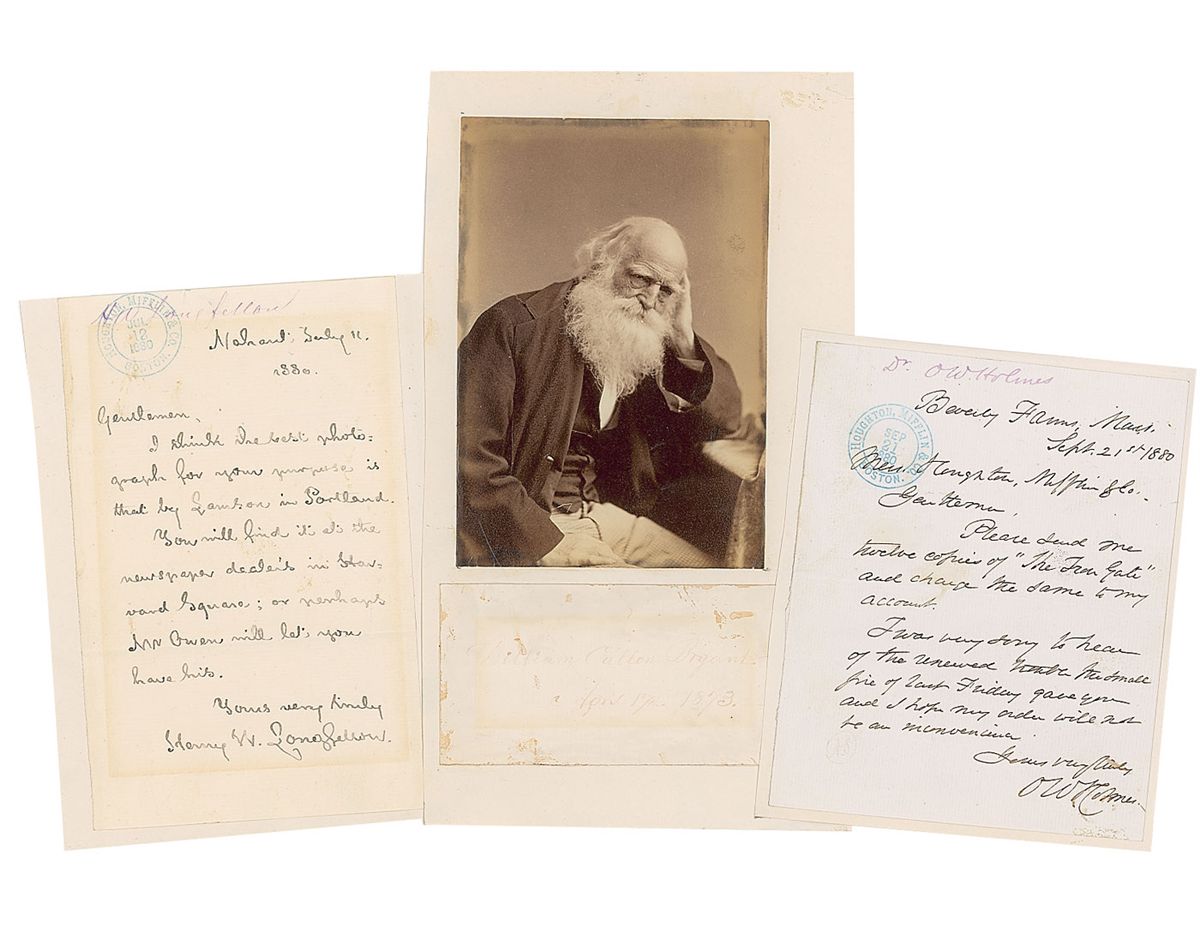 H. W. Longfellow
HOUGHTON, MIFFLIN & CO.
JUL
12
1880
BOSTON.
Nahant July 11.
1880.
Gentlemen,
I think the best photo-
graph for your purpose is
that by Lamson in Portland.
You will find it at the
newspaper dealer's in Har-
vard Square; or perhaps
Mr Owen will let you
have his.
Yours very truly
Henry W. Longfellow.
William Cullen Bryant
1873.
Dr. O W. Holmes
HOUGHTON, MIFFLIN & CO.
SEP
1880
BOSTON.
Beverly Farms, Mass.
Sept. 21st 1880
Mess. Houghton, Mifflin & Co.
Gentlemen,
Please send me
twelve copies of "The Iron Gate"
and charge the same to my
account.
I was very sorry to hear
of the renewed the small
fire of last Friday gave you
and I hope my order will not
be an inconvenience.
Yours very truly
O W Holmes.